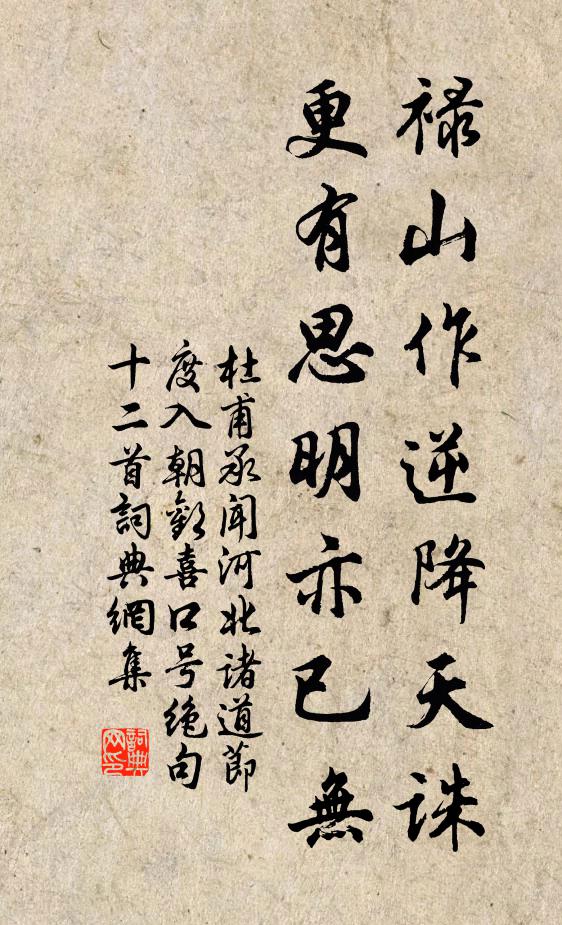 禄山作逆降天誅
更有思明亦已無
杜甫承闻河北诸道節
度入朝歡喜口号绝句
十二首詞典網集
詞典
网印